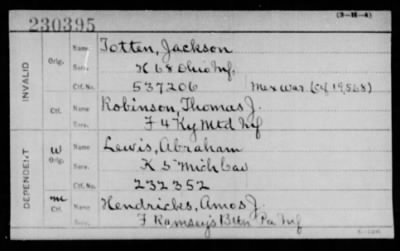 (3-H-4)
230395
INVALID
Orig. Name, Totten, Jackson
Serv. K 68 Ohio Inf.
Ctf. No. 537206 Mex War. (Cf 19,568)
Ctf. Name, Robinson, Thomas J.
Serv. F 4 Ky Mtd Inf
DEPENDENT
W Orig. Name, Lewis, Abraham
Serv. K 5" Mich Cav
Ctf. No. 232352
m Ctf. Name, Hendricks, Amos J.
Serv. F Ramsey's Btln Pa Inf